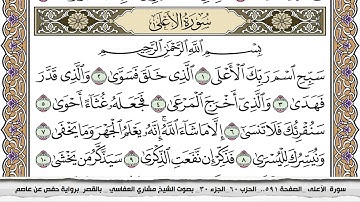 سورة الأعلى
بِسْمِ اللَّهِ الرَّحْمَٰنِ الرَّحِيمِ
سَبِّحِ اسْمَ رَبِّكَ الْأَعْلَى ١ الَّذِي خَلَقَ فَسَوَّىٰ ٢ وَالَّذِي قَدَّرَ
فَهَدَىٰ ٣ وَالَّذِي أَخْرَجَ الْمَرْعَىٰ ٤ فَجَعَلَهُ غُثَاءً أَحْوَىٰ ٥
سَنُقْرِئُكَ فَلَا تَنسَىٰ ٦ إِلَّا مَا شَاءَ اللَّهُ إِنَّهُ يَعْلَمُ الْجَهْرَ وَمَا يَخْفَىٰ ٧
وَنُيَسِّرُكَ لِلْيُسْرَىٰ ٨ فَذَكِّرْ إِن نَّفَعَتِ الذِّكْرَىٰ ٩ سَيَذَّكَّرُ مَن يَخْشَىٰ ١٠
سورة الأعلى، الصفحة ٥٩١، الحزب ٦٠ الجزء ٣٠ . بصوت الشيخ مشاري العفاسي بالقصر برواية حفص عن عاصم